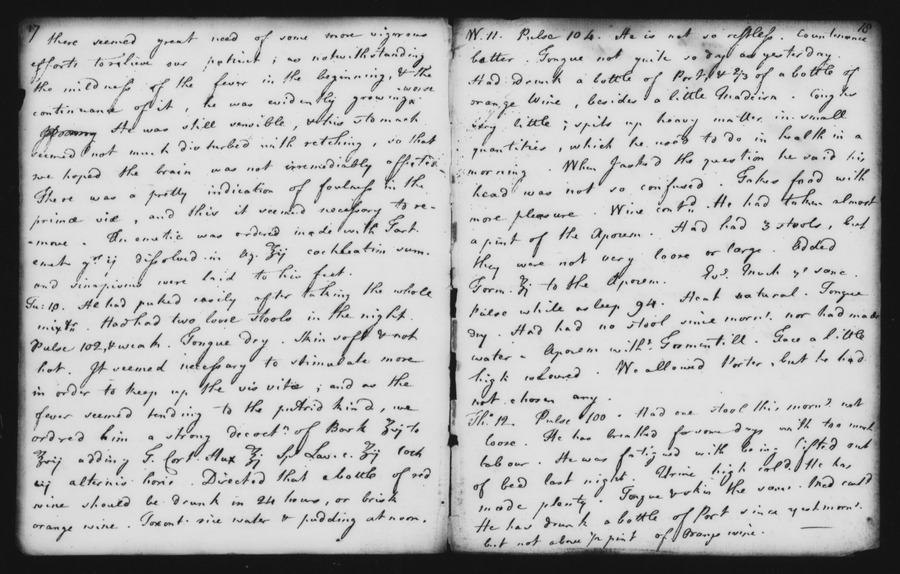 17
there seemed great need of some more vigorous
efforts to relieve our patient ; as notwithstanding
the mildness of the fever in the beginning, & the
continuance of it, he was evidently growing worse
He was still sensible, & his stomach
seemed not much disturbed with retching, so that
we hoped the brain was not irremediably affected.
There was a pretty indication of foulness in the
primæ viæ, and this it seemed necessary to re-
-move. An emetic was ordered made with Tart.
emet. gr ij dissolved in aq. ℥ij cochleatim sum.
and sinapisms were laid to his feet.
Tu. 10. He had puked easily after taking the whole
mixtr. Had had two loose stools in the night.
Pulse 102, & weak. Tongue dry. Skin soft & not
hot. It seemed necessary to stimulate more
in order to keep up the vis vitæ ; and as the
fever seemed tending to the putrid kind, we
ordred him a strong decoctn. of Bark ℥ij to
℥vij adding T. Cort. Aux ℥j Sp. Lav. c. ℥ij coch
iij alternis horis. Directed that a bottle of red
wine should be drunk in 24 hours, or brisk
orange wine. Foxont. rice water & pudding at noon.
18
W. 11. Pulse 104. He is not so restless. Countenance
better. Tongue not quite so dry as yesterday.
Had drunk a bottle of Port, & 2/3 of a bottle of
orange Wine, besides a little Madeira. Coughs
very little ; spits up heavy matter in small
quantities, which he used to do in health in a
morning. When I asked the question he said his
head was not so confused. Takes food with
more pleasure. Wine contd. He had taken almost
a pint of the Apozem. Had had 3 stools, but
they were not very loose or large. Added
Torm. ℥j to the Apozem. Evg. Much ye same.
Pulse while asleep 94. Heat natural. Tongue
dry. Had had no stool since morng. nor had made
water. Apozem witht. Tormentill. Gave a little
high coloured. We allowed Porter, but he had
not chosen any.
Th. 12. Pulse 100. Had one stool this morng. not
loose. He has breathed for some days with too much
labour. He was fatigued with being lifted out
of bed last night. Urine high cold. He has
made plenty. Tongue & skin the same. Had cold
He has drunk a bottle of Port since yestmorng.
but not above ½ pint of Orange wine.